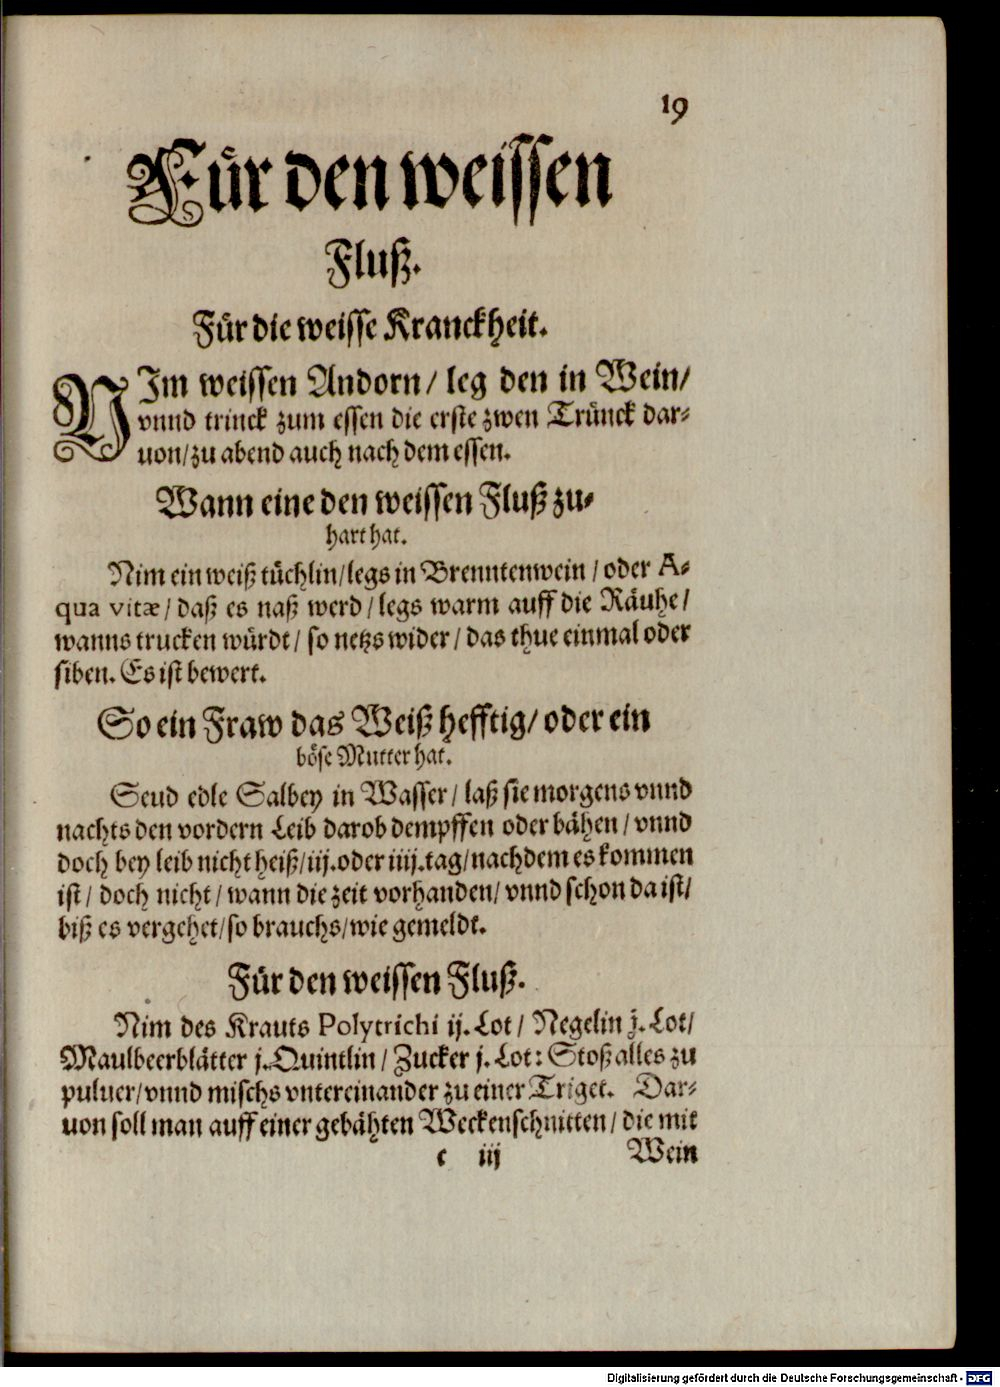 19
Für den weissen
Fluß.
Für die weisse Kranckheit.
NIm weissen Andorn/ leg den in Wein/
vnnd trinck zum essen die erste zwen Trünck dar⸗
uon/ zu abend auch nach dem essen.
Wann eine den weissen Fluß zu⸗
hart hat.
Nim ein weiß tüchlin/ legs in Brenntenwein / oder A⸗
qua vitæ/ daß es naß werd / legs warm auff die Räuhe/
wanns trucken würdt/ so netzs wider / das thue einmal oder
siben. Es ist bewert.
So ein Fraw das Weiß hefftig/ oder ein
böse Mutter hat.
Seud edle Salbey in Wasser/ laß sie morgens vnnd
nachts den vordern Leib darob dempffen oder bähen / vnnd
doch bey leib nicht heiß/ iij. oder iiij. tag/ nach dem es kommen
ist/ doch nicht / wann die zeit vorhanden/ vnnd schon da ist/
biß es vergehet/ so brauchs/ wie gemeldt.
Für den weissen Fluß.
Nim des Krauts Polytrichi ij. Lot / Negelin j. Lot/
Maulbeerblätter j. Quintlin / Zucker j. Lot: Stoß alles zu
puluer/ vnnd mischs vntereinander zu einer Triget. Dar⸗
uon soll man auff einer gebähten Weckenschnitten / die mit
c iij Wein
Digitalisierung gefördert durch die Deutsche Forschungsgemeinschaft - DFG